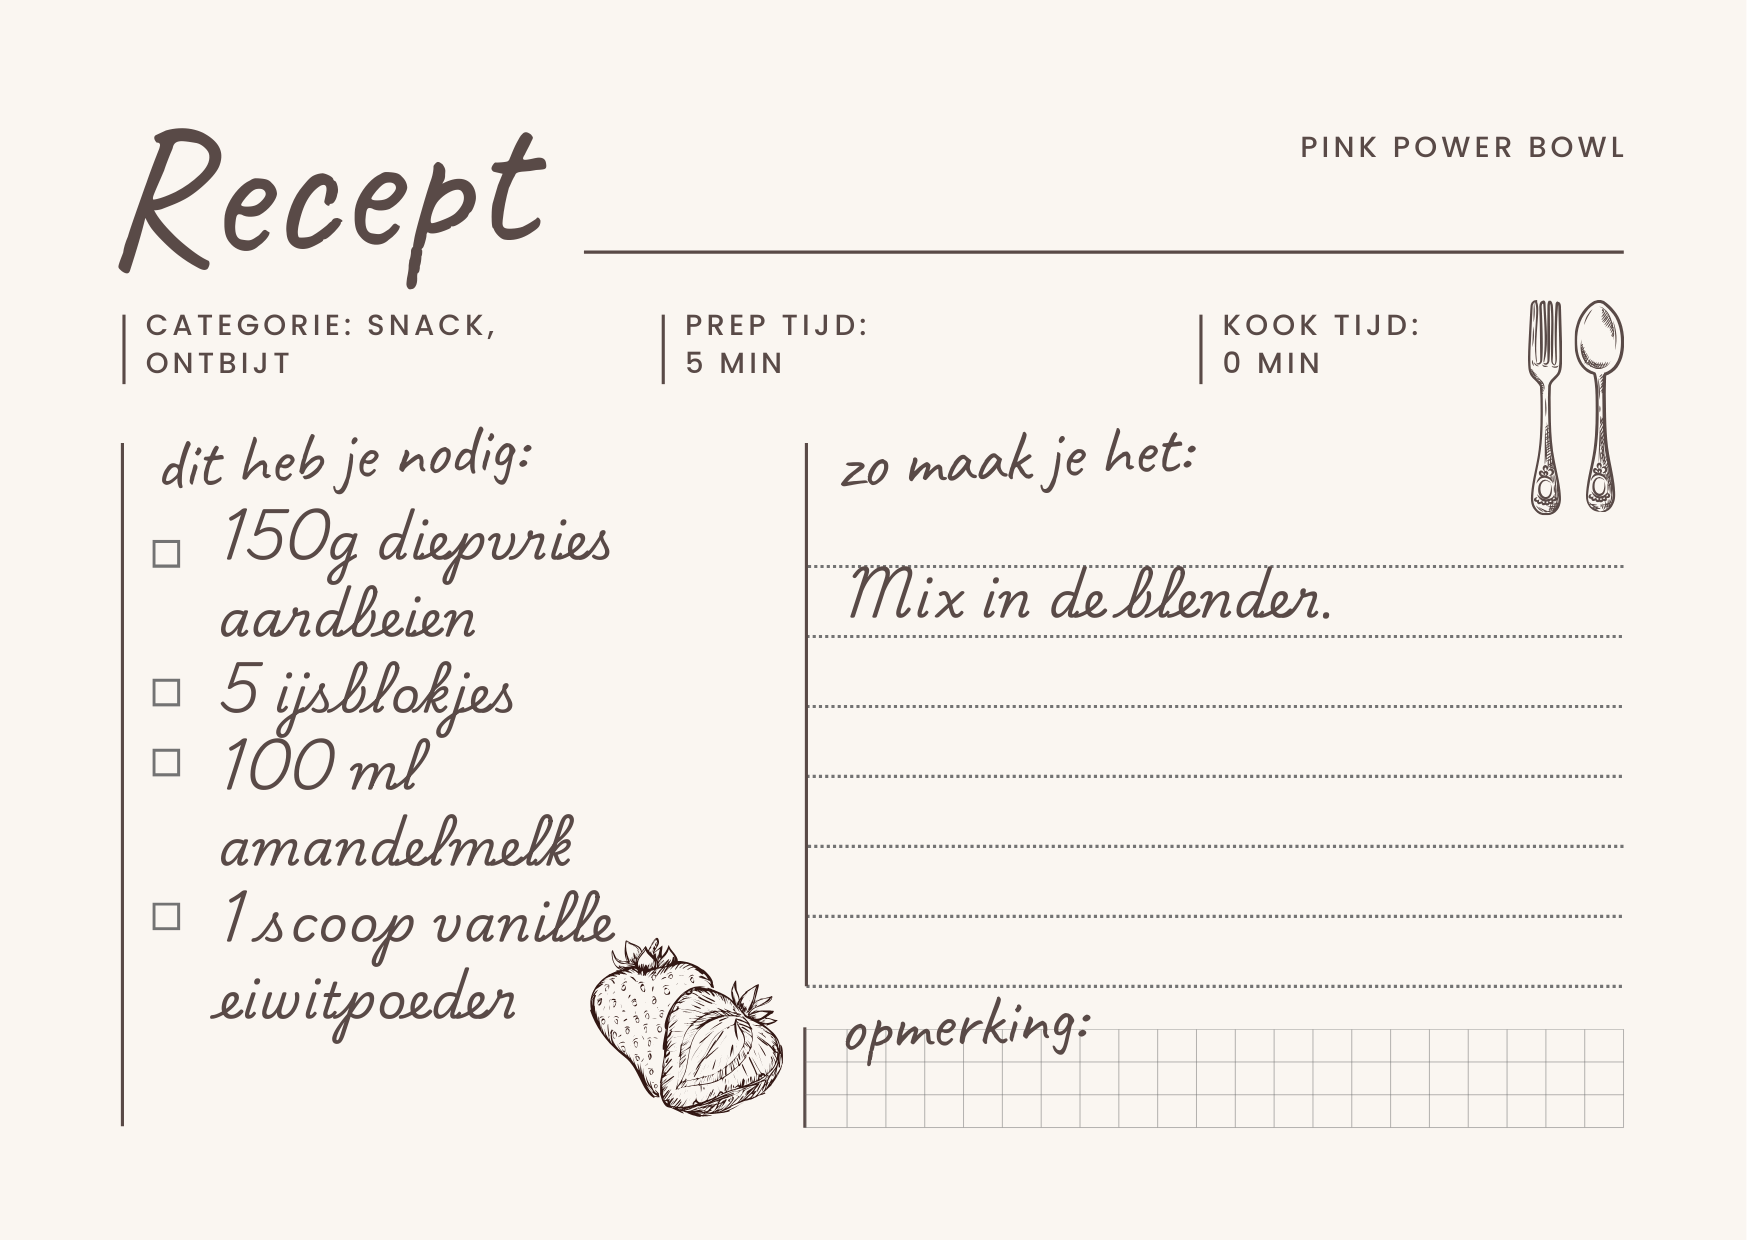 Recept
PINK POWER BOWL
CATEGORIE: SNACK,
ONTBIJT
PREP TIJD:
5 MIN
KOOK TIJD:
0 MIN
dit heb je nodig:
150g diepvries
aardbeien
5 ijsblokjes
100 ml
amandelmelk
1 scoop vanille
eiwitpoeder
zo maak je het:
Mix in de blender.
opmerking: